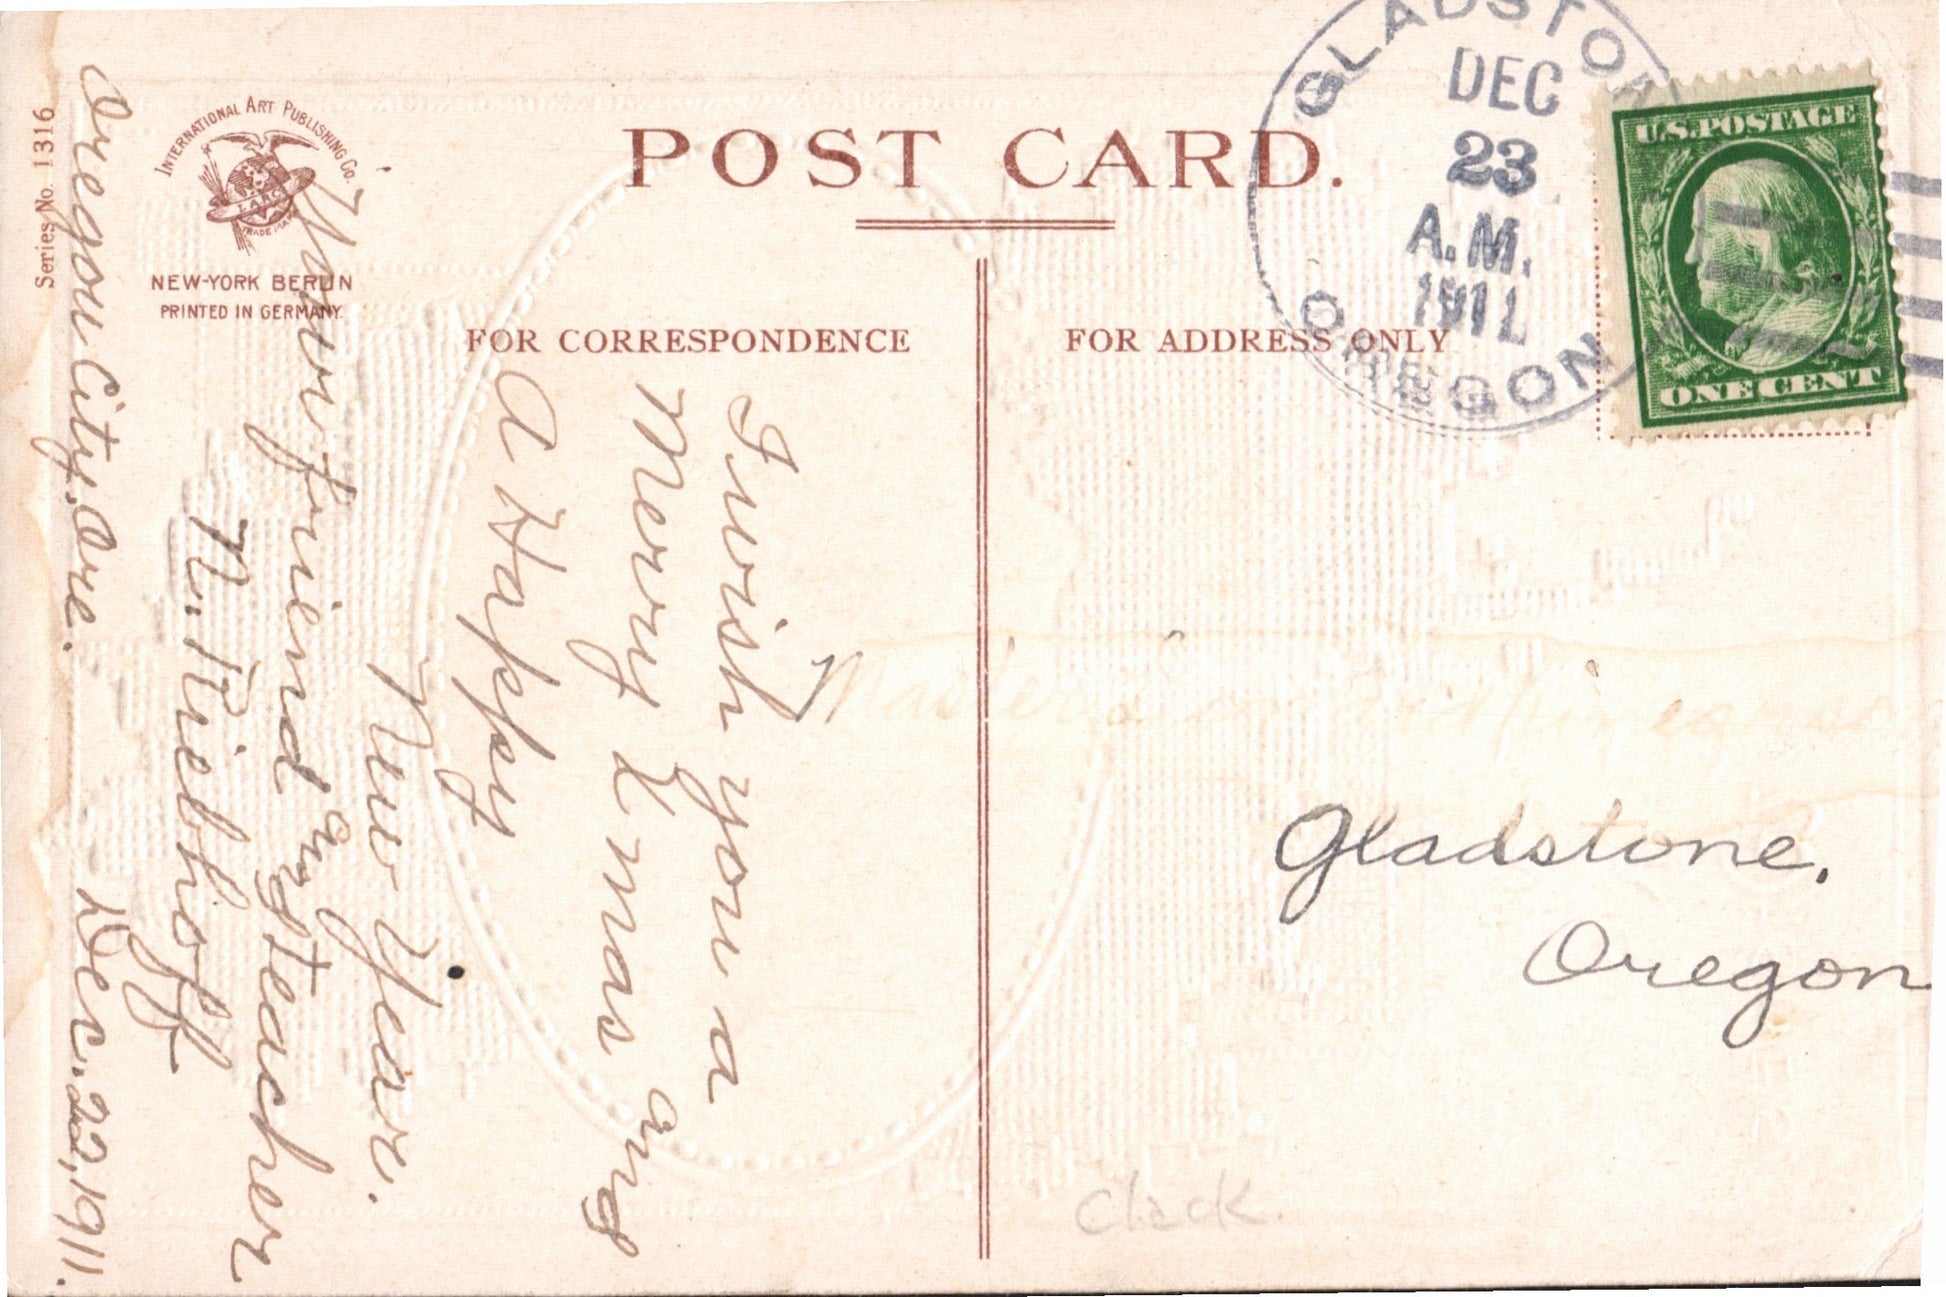 Series No. 1316
INTERNATIONAL ART PUBLISHING Co.
TRADE MARK
NEW-YORK BERLIN
PRINTED IN GERMANY.
POST CARD.
FOR CORRESPONDENCE
FOR ADDRESS ONLY
GLADSTON
DEC
23
A.M.
1911
OREGON
U.S. POSTAGE
ONE CENT
Oregon City, Ore. Dec. 22, 1911.
I wish you a
Merry Xmas and
A Happy
New Year.
Your friend and teacher
N. Riebhoff
Master
Gladstone,
Oregon
Clack